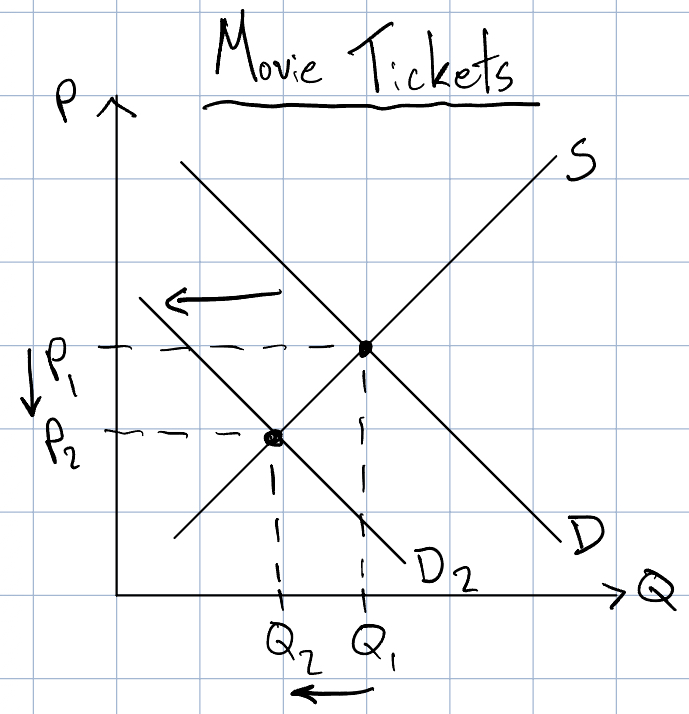 Movie Tickets
P
S
P₁
P₂
D
D₂
Q
Q₂ Q₁